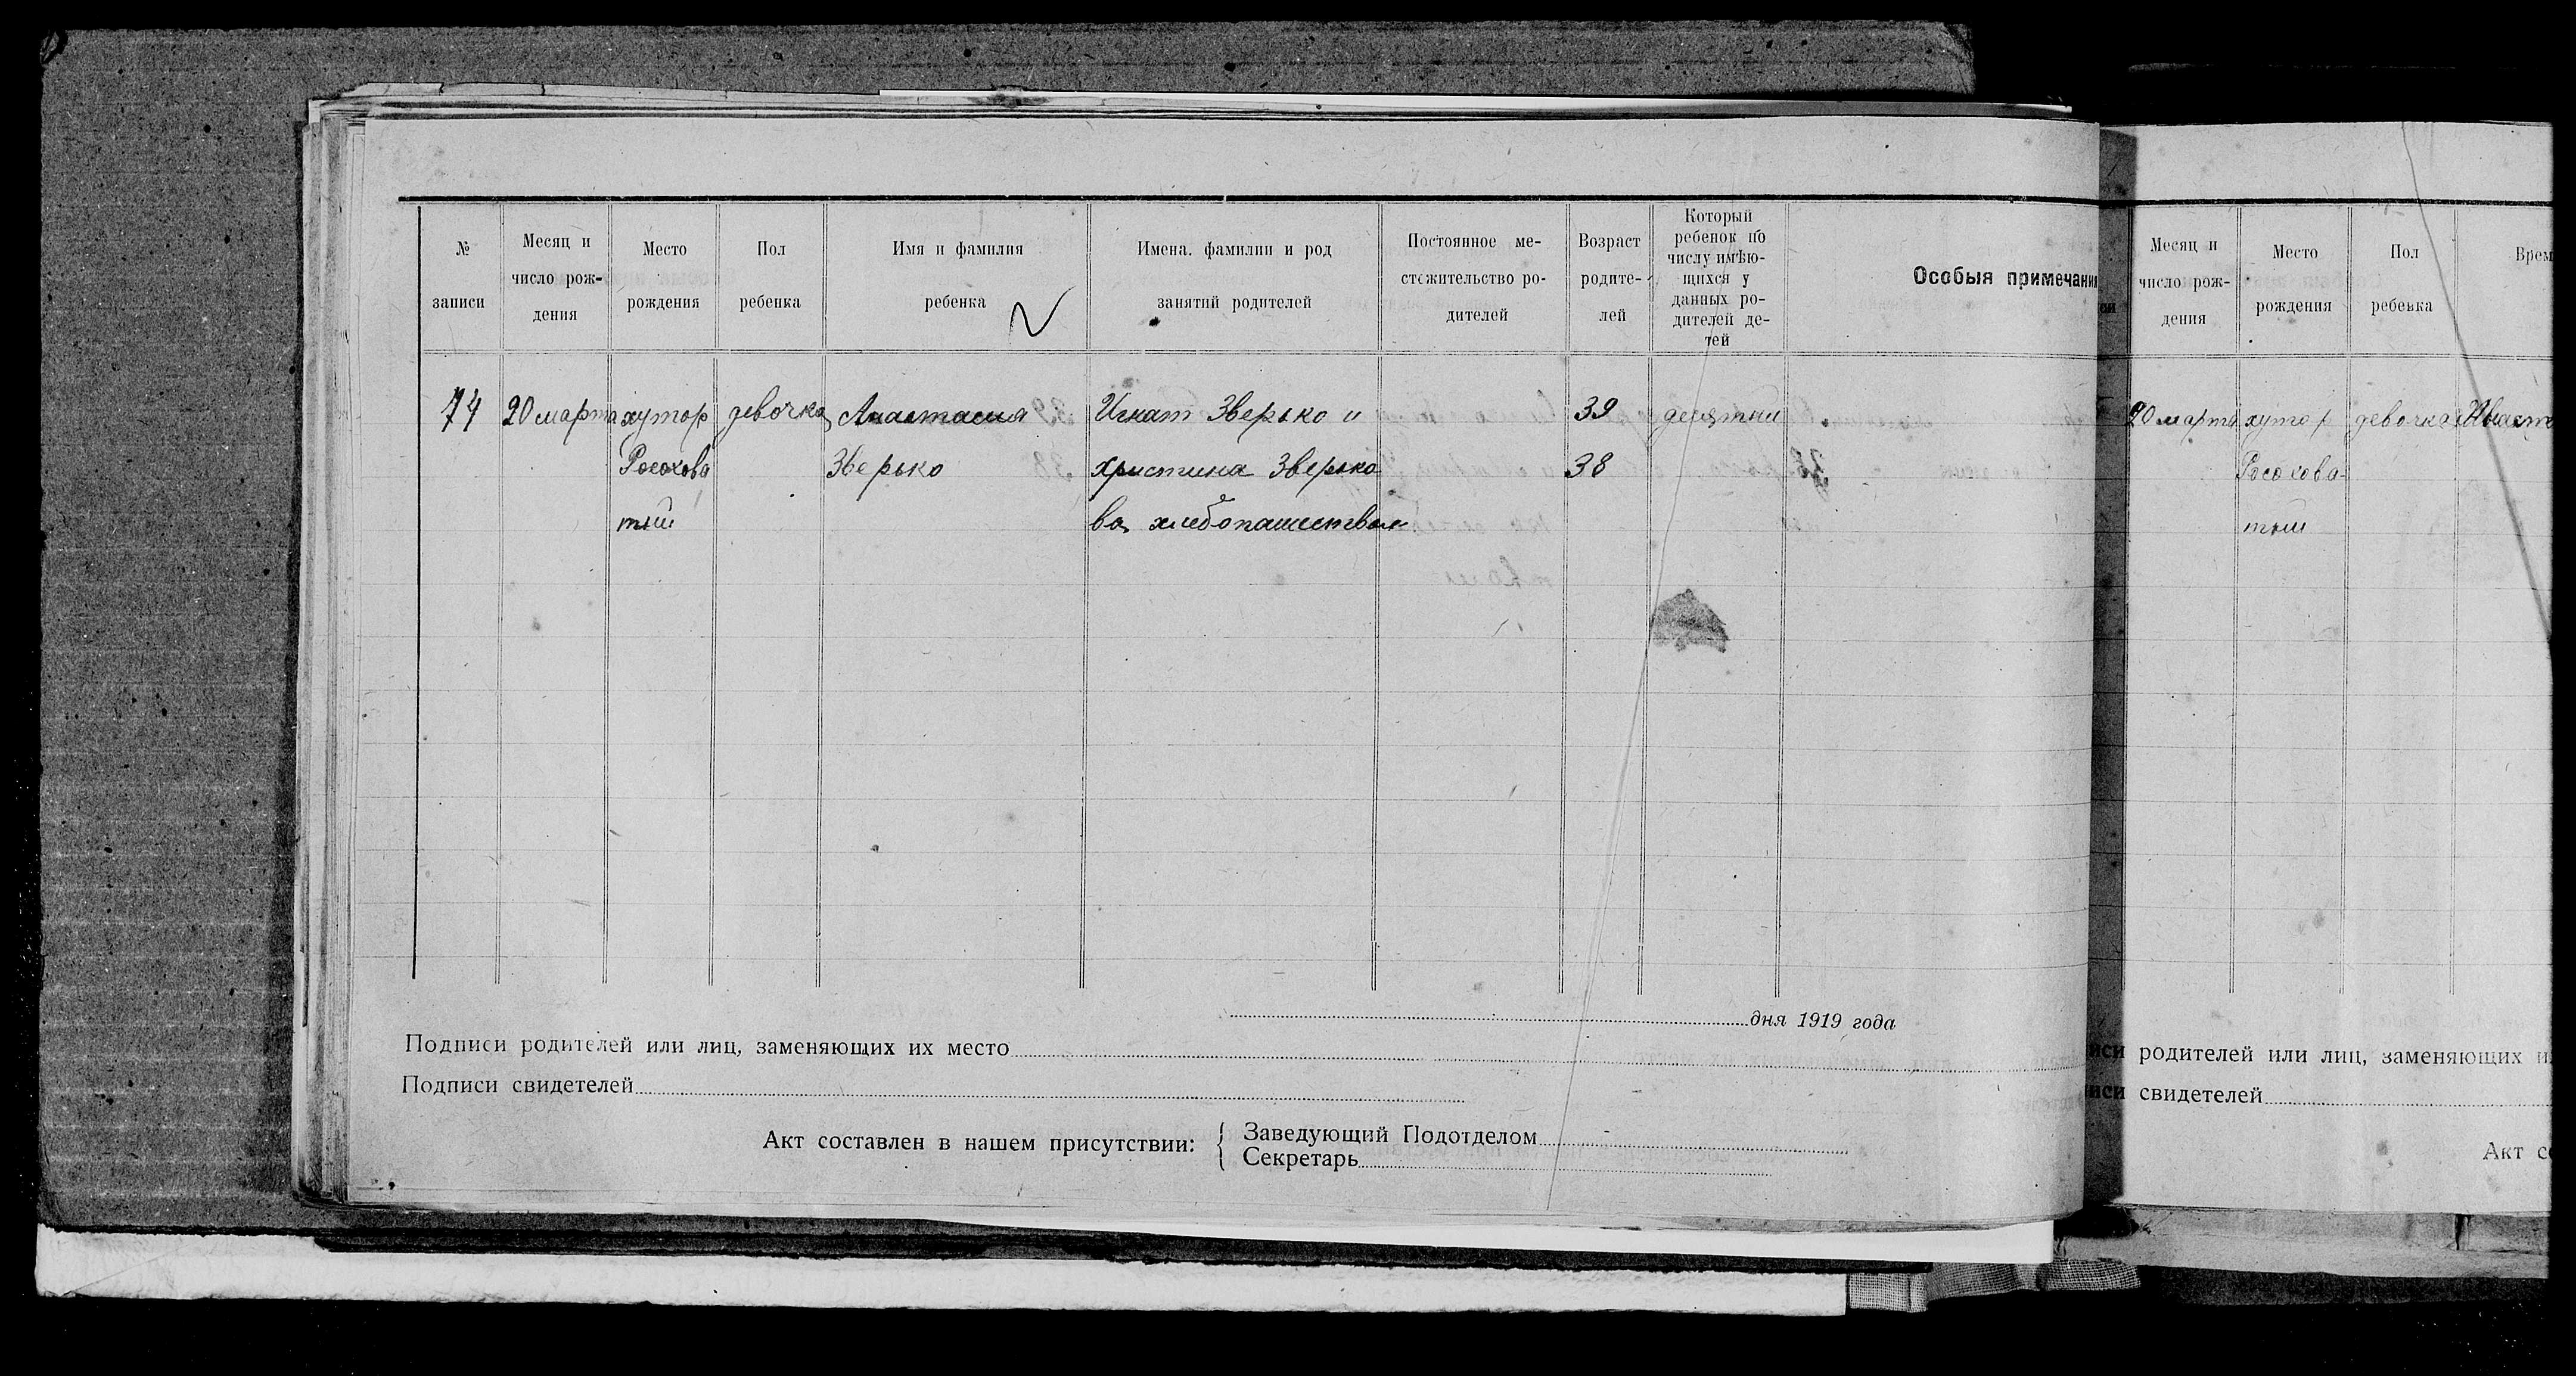 № записи
Месяц и число рождения
Место рождения
Пол ребенка
Имя и фамилия ребенка
Имена. фамилии и род занятий родителей
Постоянное местожительство родителей
Возраст родителей
Который ребенок по числу имѣющихся у данных родителей детей
Особыя примечания
74 20 марта хутор девочка Анастасия Игнат Зверько и 39 десятый
Росохова Зверько Христина Зверько 38
тый ва хлебопашеством
дня 1919 года
Подписи родителей или лиц, заменяющих их место
Подписи свидетелей
Акт составлен в нашем присутствии: { Заведующий Подотделом
Секретарь
Месяц и число рождения
Место рождения
Пол ребенка
Врем
20 марта хутор девочка
Росохова-
тый
родителей или лиц, заменяющих
свидетелей
Акт со